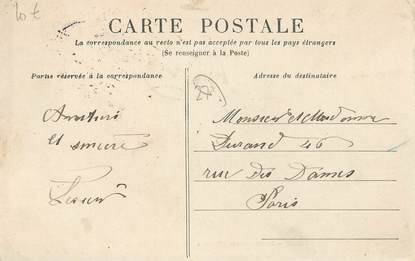 10 €
CARTE POSTALE
La correspondance au recto n'est pas acceptée par tous les pays étrangers
(Se renseigner à la Poste)
Partie réservée à la correspondance
Adresse du destinataire
et sincère
Monsieur et Madame
Durand 46
rue des Dames
Paris